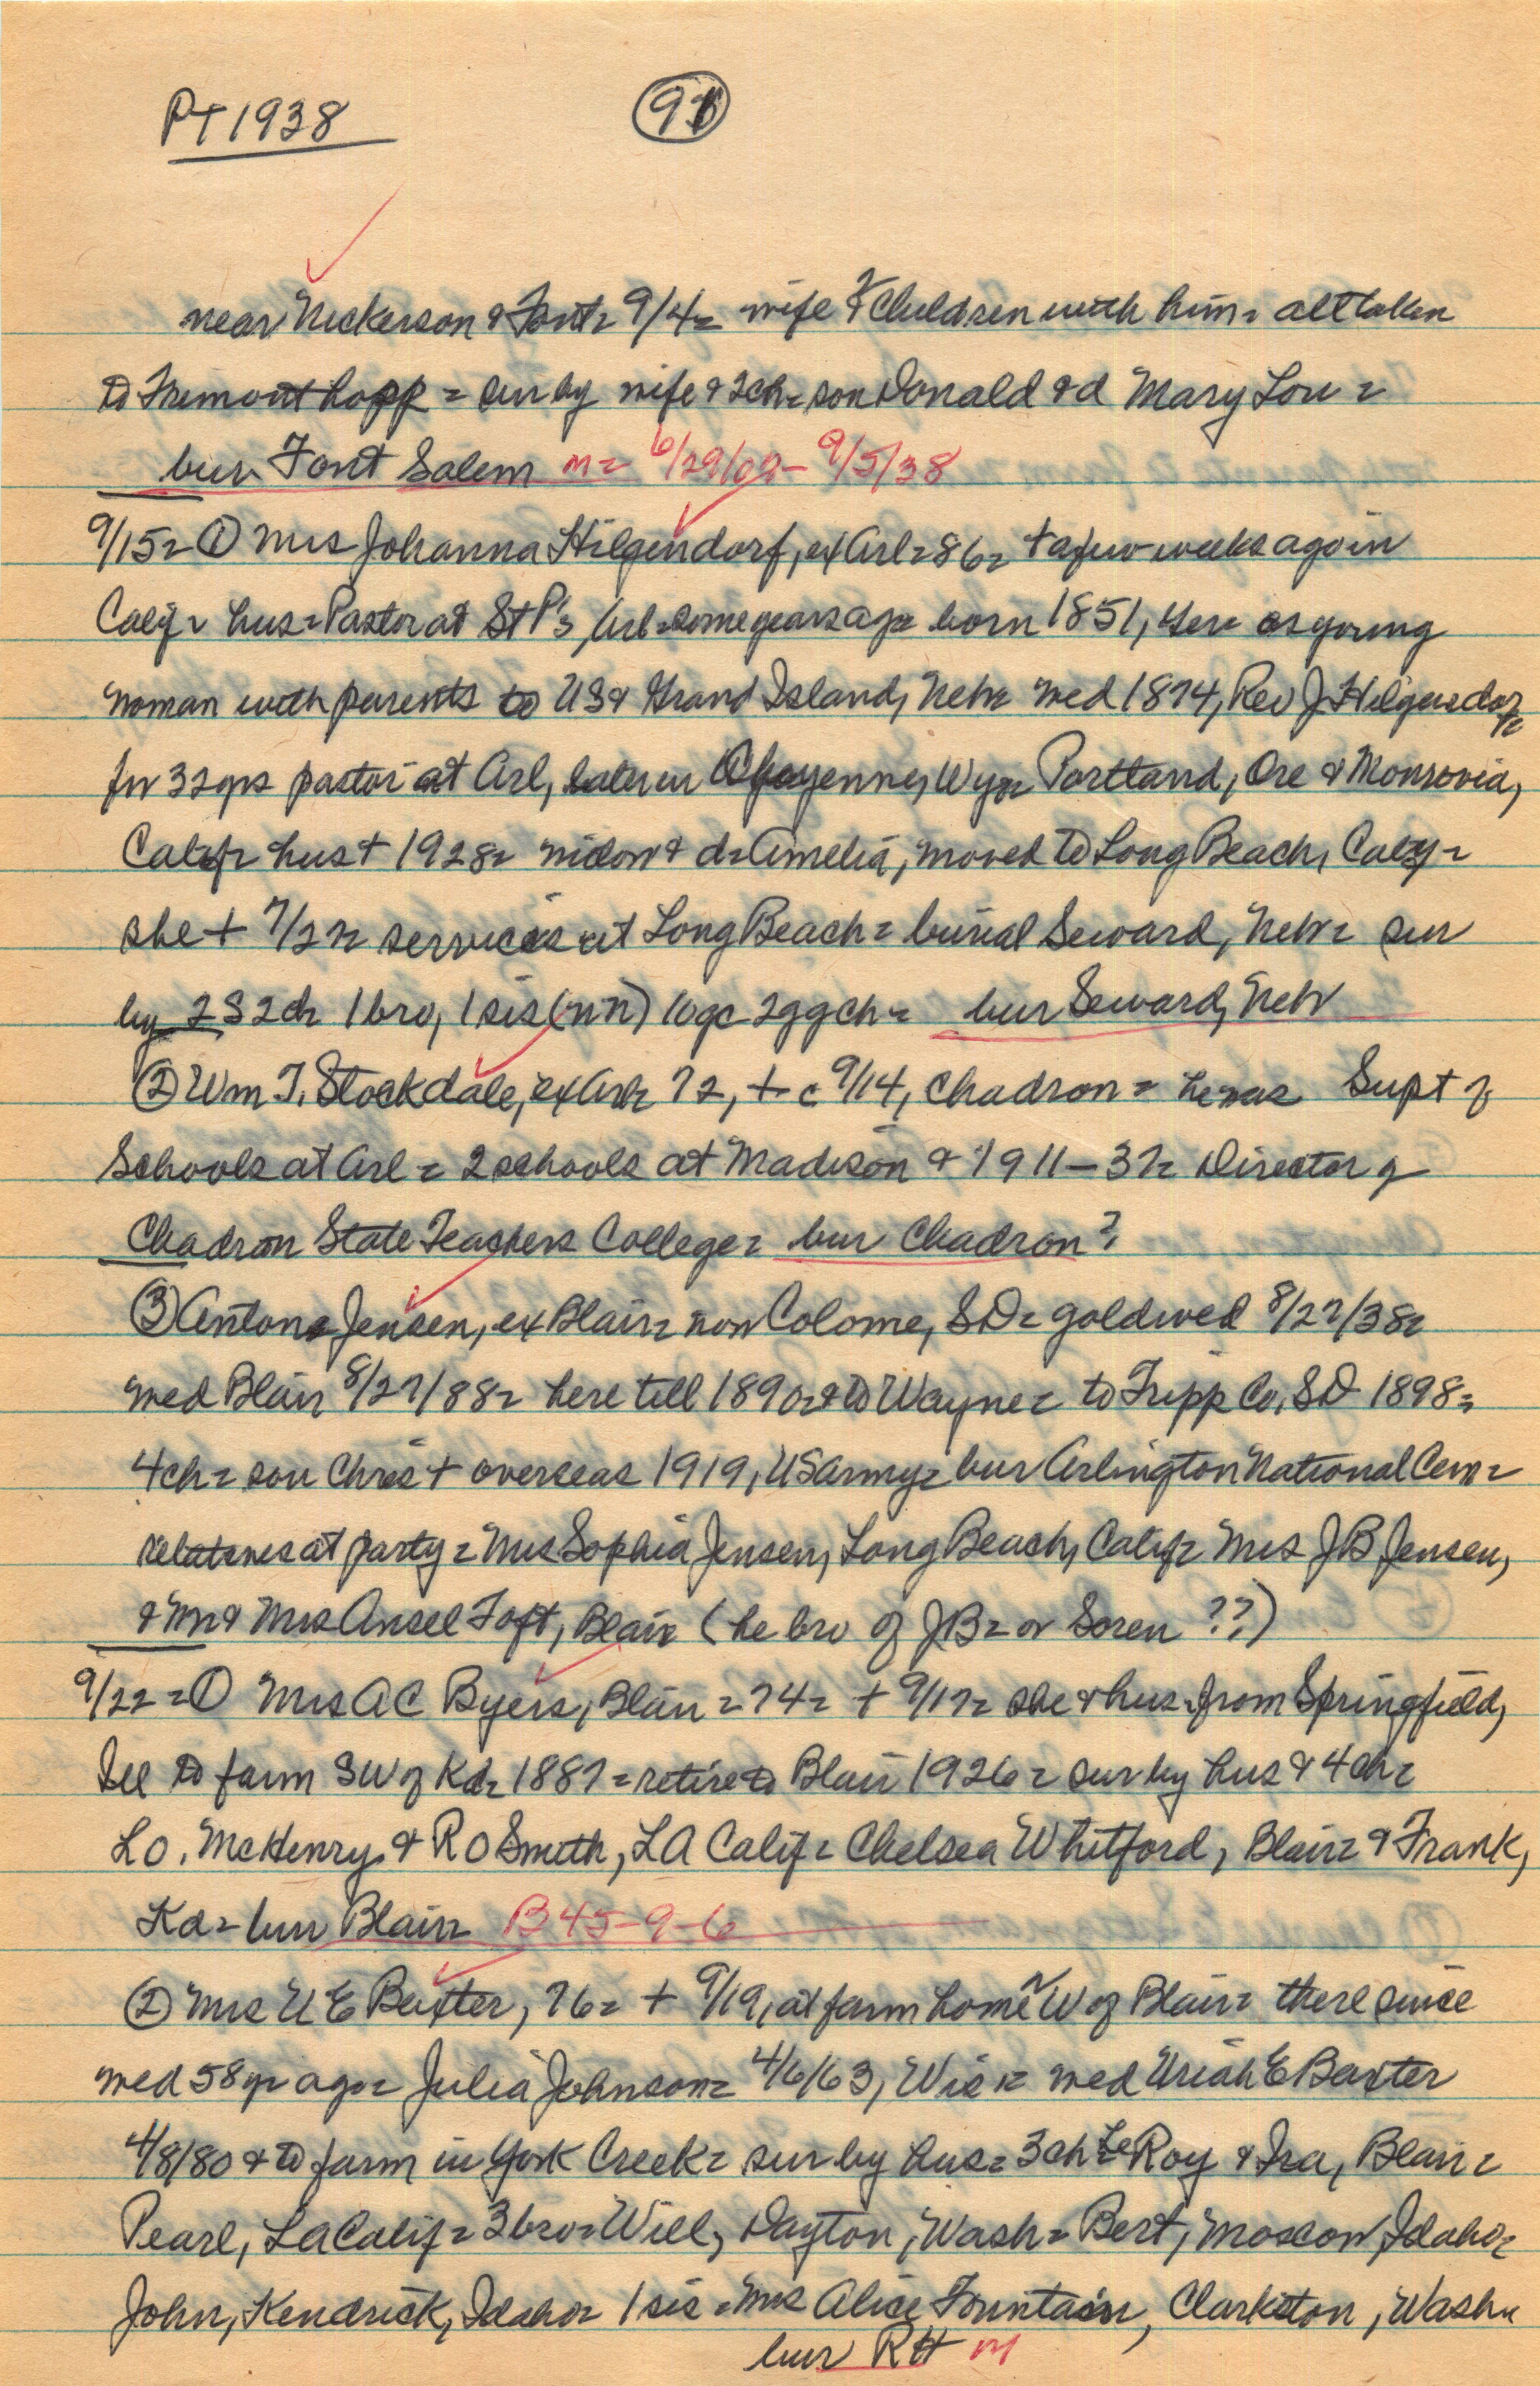 PT 1938
91
near Nickerson & Font = 9/4 = wife & children with him = all taken
to Fremont hosp = sur by wife & 2ch = son Donald & d Mary Lou =
bur Font Salem m = 6/29/09 - 9/5/38
9/15 = ① Mrs Johanna Hilgendorf, ex Arl = 86 = + a few weeks ago in
Calif = hus = Pastor at St P's, Arl = some years ago = born 1851, Ger = as young
woman with parents to US & Grand Island, Nebr = med 1874, Rev J Hilgendorf =
for 32 yrs pastor at Arl, later in Cheyenne, Wyo = Portland, Ore & Monrovia,
Calif = hus + 1928 = widow & d = Amelia, moved to Long Beach, Calif =
she + 7/22 = services at Long Beach = burial Seward, Nebr = sur
by 2S 2d = 1 bro, 1 sis (nn) 10gc 2ggch = bur Seward, Nebr
② Wm T. Stockdale, ex Arl = 72, + c 9/14, Chadron = he was Supt of
Schools at Arl = 2 schools at Madison & 1911-37 = Director of
Chadron State Teachers College = bur Chadron?
③ Anton Jensen, ex Blair = now Colome, SD = gold wed 8/27/38 =
med Blair 8/27/88 = here till 1890 = & to Wayne = to Tripp Co, SD 1898 =
4ch = son Chris + overseas 1919, US Army = bur Arlington National Cem =
relatives at party = Mrs Sophia Jensen, Long Beach, Calif = Mrs J B Jensen,
& Mr & Mrs Ansel Toft, Blair (he bro of JB = or Soren ??)
9/22 = ① Mrs A C Byers, Blair = 74 = + 9/17 = she & hus from Springfield,
Ill to farm SW of Kd = 1887 = retire to Blair 1926 = sur by hus & 4ch =
L O. McHenry & R O Smith, LA Calif = Chelsea Whitford, Blair = & Frank,
Kd = bur Blair = B 45-9-6
② Mrs U E Baxter, 76 = + 9/19, at farm home W of Blair = there since
med 58 yr ago = Julia Johnson = 4/6/63, Wis = med Uriah E Baxter
4/8/80 & to farm in York Creek = sur by hus = 3ch = LeRoy & Ira, Blair =
Pearl, LA Calif = 3bro = Will, Dayton, Wash = Bert, Moscow, Idaho =
John, Kendrick, Idaho = 1 sis = Mrs Alice Fountain, Clarkston, Wash =
bur RH m